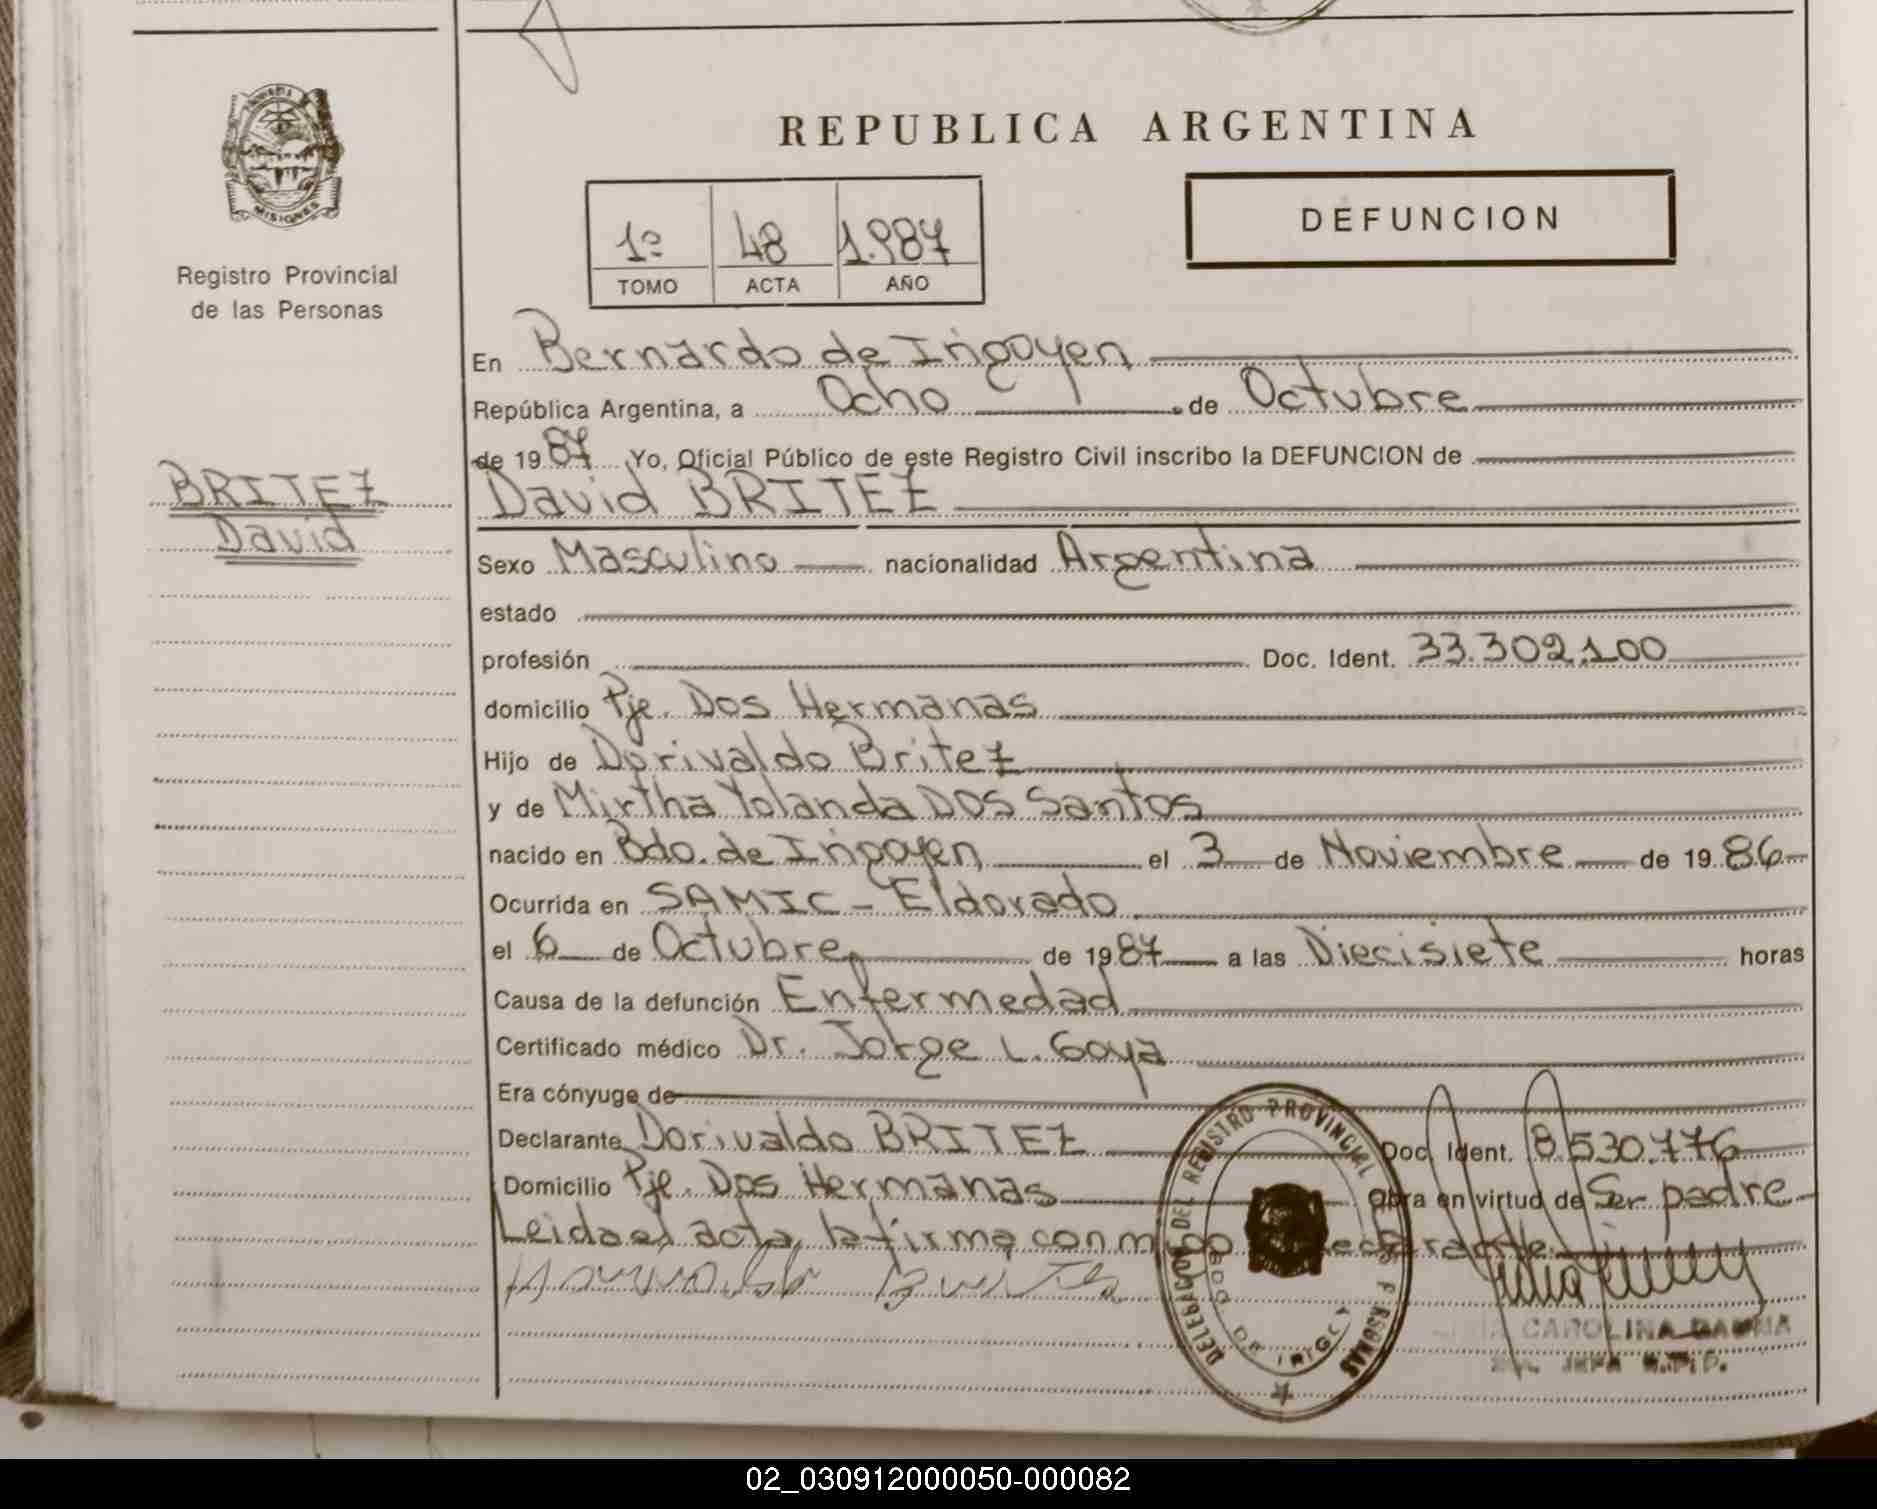 MISIONES
Registro Provincial
de las Personas
BRITEZ
David
REPUBLICA ARGENTINA
1º 48 1.987
TOMO ACTA AÑO
DEFUNCION
En Bernardo de Irigoyen
República Argentina, a Ocho de Octubre
de 1987 Yo, Oficial Público de este Registro Civil inscribo la DEFUNCION de
David BRITEZ
Sexo Masculino nacionalidad Argentina
estado
profesión Doc. Ident. 33.302.100
domicilio Pje. Dos Hermanas
Hijo de Dorivaldo Britez
y de Mirtha Yolanda DOS Santos
nacido en Bdo. de Irigoyen el 3 de Noviembre de 1986
Ocurrida en SAMIC - Eldorado
el 6 de Octubre de 1987 a las Diecisiete horas
Causa de la defunción Enfermedad
Certificado médico Dr. Jorge L. Goya
Era cónyuge de
Declarante Dorivaldo BRITEZ Doc. Ident. 8.530.776
Domicilio Pje. Dos Hermanas Obra en virtud de Ser padre
Leida el acta, la firma conmigo el declarante
DELEGACION DEL REGISTRO PROVINCIAL DE LAS PERSONAS
BDO. DE IRIGOYEN
CAROLINA
JEFA R.P.P.
02_030912000050-000082